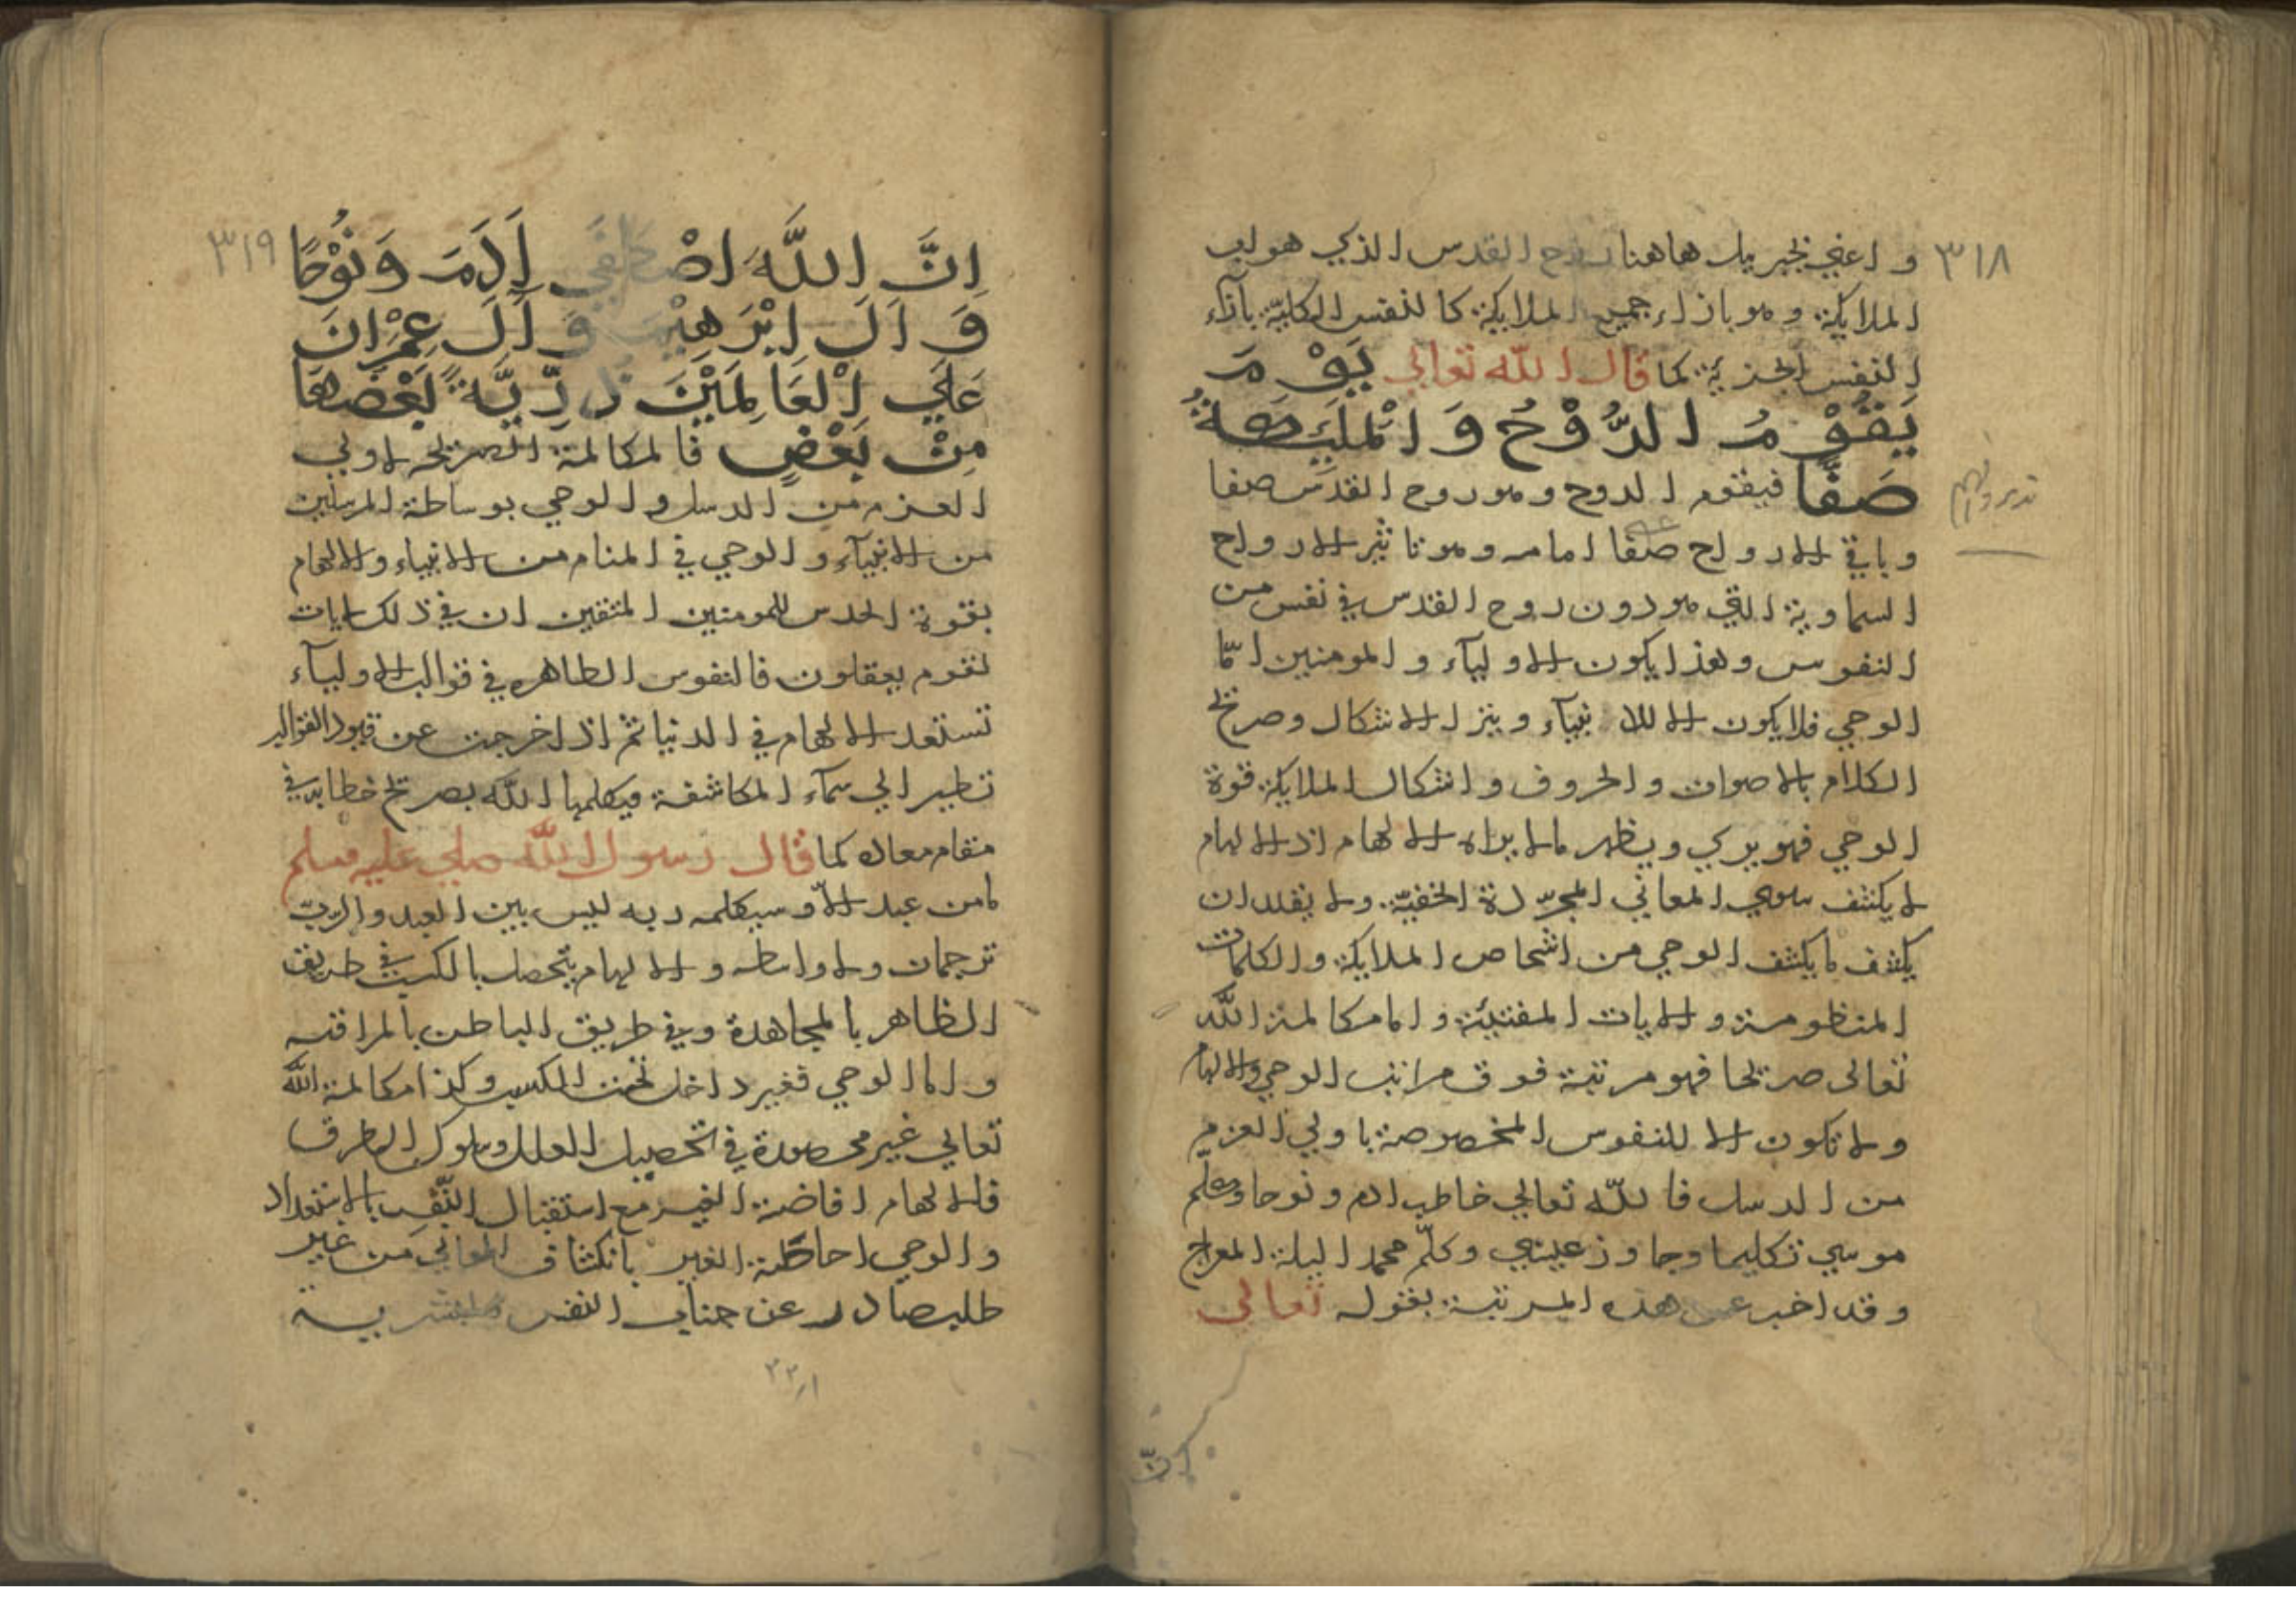 ٣١٨
و اعني بجبريل هاهنا روح القدس الذي هو لب
الملايكة وهو بازاء جميع الملايكة كالنفس الكلية بآزاء
النفس الجزية كما قال الله تعالي يَوْمَ
يَقُوْمُ الرُّوْحُ وَالْمَلَيِكَةُ
صَفًّا فيقوم الروح وهو روح القدس صفا
وباقي الارواح صفا امامه وهو تاثير الارواح
السماوية التي هو دون روح القدس في نفس من
النفوس وهذا يكون للاوليآء والمومنين امّا
الوحي فلا يكون الا للانبيآء وينزل الاشكال وصريح
الكلام بالاصوات والحروف واشكال الملايكة قوة
الوحي فهو يري ويظهر ما لا يراه الالهام اذ الالهام
لا يكشف سوي المعاني المجرّدة الخفيّة ولا يقدر ان
يكشف ما يكشف الوحي من اشخاص الملايكة والكلمات
المنظومة والايات المفتنة واما مكالمة الله
تعالى صريحا فهو مرتبة فوق مراتب الوحي والالهام
ولا تكون الا للنفوس المخصوصة باولي العزم
من الرسل فالله تعالي خاطب ادم ونوحا وكلّم
موسي تكليما وجاوز عيسي وكلّم محمدا ليلة المعراج
وقد اخبر عن هذه المرتبة بقوله تعالي
انّ
٣١٩
اِنَّ اللَّهَ اصْطَفَي اَدَمَ وَنُوْحًا
وَ اَلَ اِبْرَهِيْمَ وَ اَلَ عِمْرَانَ
عَلَي الْعَالَمِيْنَ ذُرِّيَّةً بَعْضُهَا
مِنْ بَعْضٍ فالمكالمة الصريحة لاولي
العزم من الرسل والوحي بوساطة المرسلين
من الانبيآء والوحي في المنام من الانبياء والالهام
بقوة الحدس للمومنين المتقين ان في ذلك لايات
لقوم يعقلون فالنفوس الطاهره في قوالب الاوليآء
تستعد الالهام في الدنيا ثم اذا خرجت عن قيود القوالب
تطير الي سمآء المكاشفة فيكلمها الله بصريح خطابه في
مقام معاده كما قال رسول الله صلي عليه وسلم
ما من عبد الاّ وسيكلمه ربه ليس بين العبد والربّ
ترجمان ولا واسطه والالهام يتحصل بالكسب في طريق
الظاهر بالمجاهدة وفي طريق الباطن بالمراقبه
واما الوحي فغير داخل تحت الكسب وكذا مكالمة الله
تعالي غير محصورة في تحصيل العلل وسلوك الطرق
فالالهام افاضة الغير مع استقبال النّفس بالاستعداد
والوحي احاطة الغير بانكشاف المعاني من غير
طلب صادر عن جناب النفس البشرية